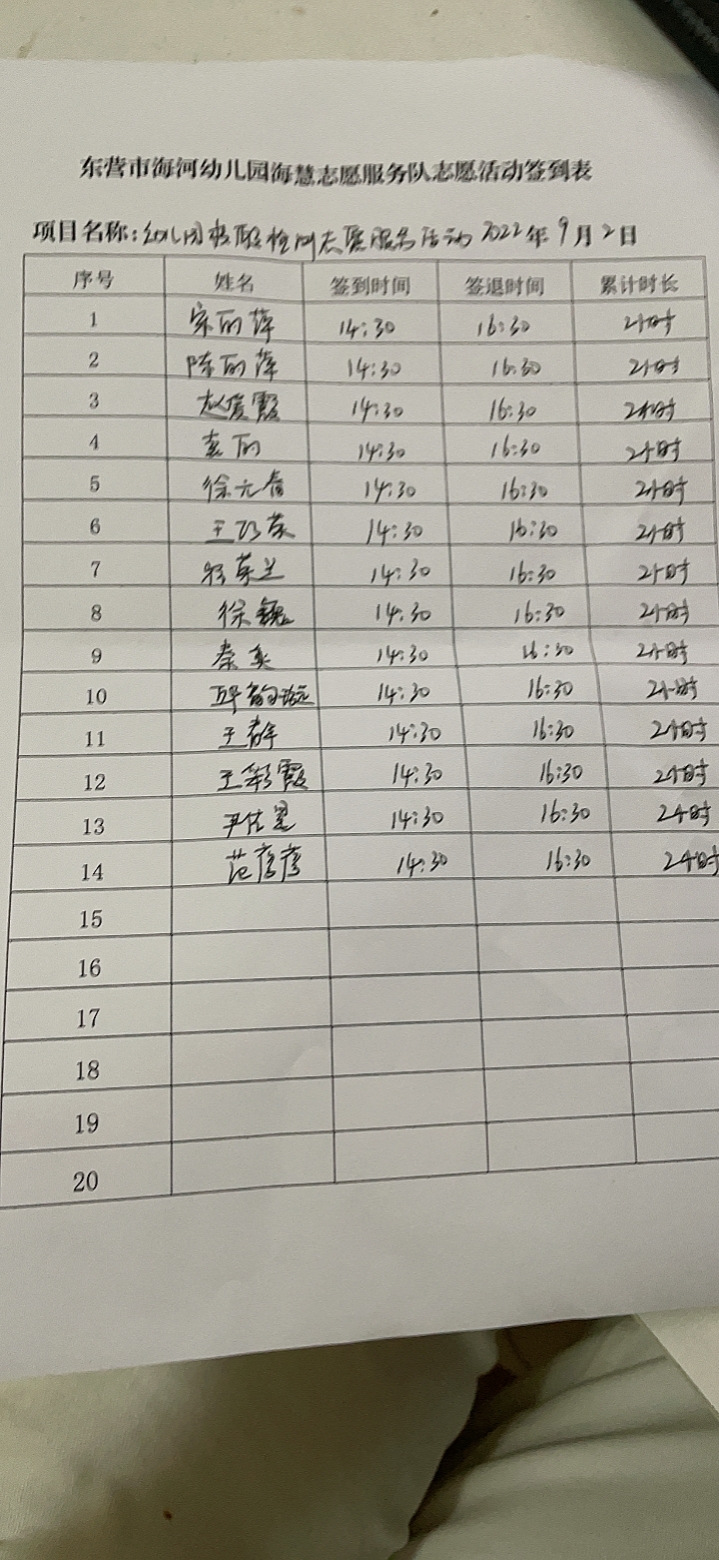 东营市海河幼儿园海慧志愿服务队志愿活动签到表
项目名称:幼儿园 志愿服务活动 2022年9月2日
序号 姓名 签到时间 签退时间 累计时长
1 宋丽萍 14:30 16:30 2小时
2 陈丽萍 14:30 16:30 2小时
3 赵爱霞 14:30 16:30 2小时
4 袁丽 14:30 16:30 2小时
5 徐元香 14:30 16:30 2小时
6 王巧英 14:30 16:30 2小时
7 14:30 16:30 2小时
8 徐巍 14:30 16:30 2小时
9 秦英 14:30 16:30 2小时
10 14:30 16:30 2小时
11 王静 14:30 16:30 2小时
12 王彩霞 14:30 16:30 2小时
13 尹佐星 14:30 16:30 2小时
14 范彦彦 14:30 16:30 2小时
15
16
17
18
19
20